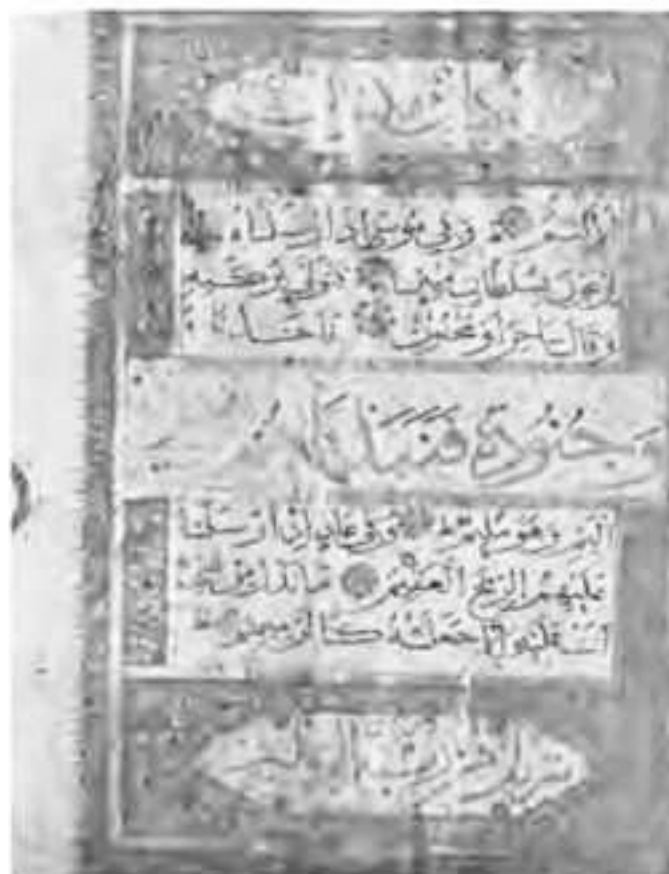 الاليم وفي موسى اذ ارسلناه الى
فرعون بسلطان مبين فتولى بركنه
وقال ساحر او مجنون فاخذناه
وجنوده فنبذناهم في
اليم وهو مليم وفي عاد اذ ارسلنا
عليهم الريح العقيم ما تذر من شيء
اتت عليه الا جعلته كالرميم
تنزيل من رب العالمين